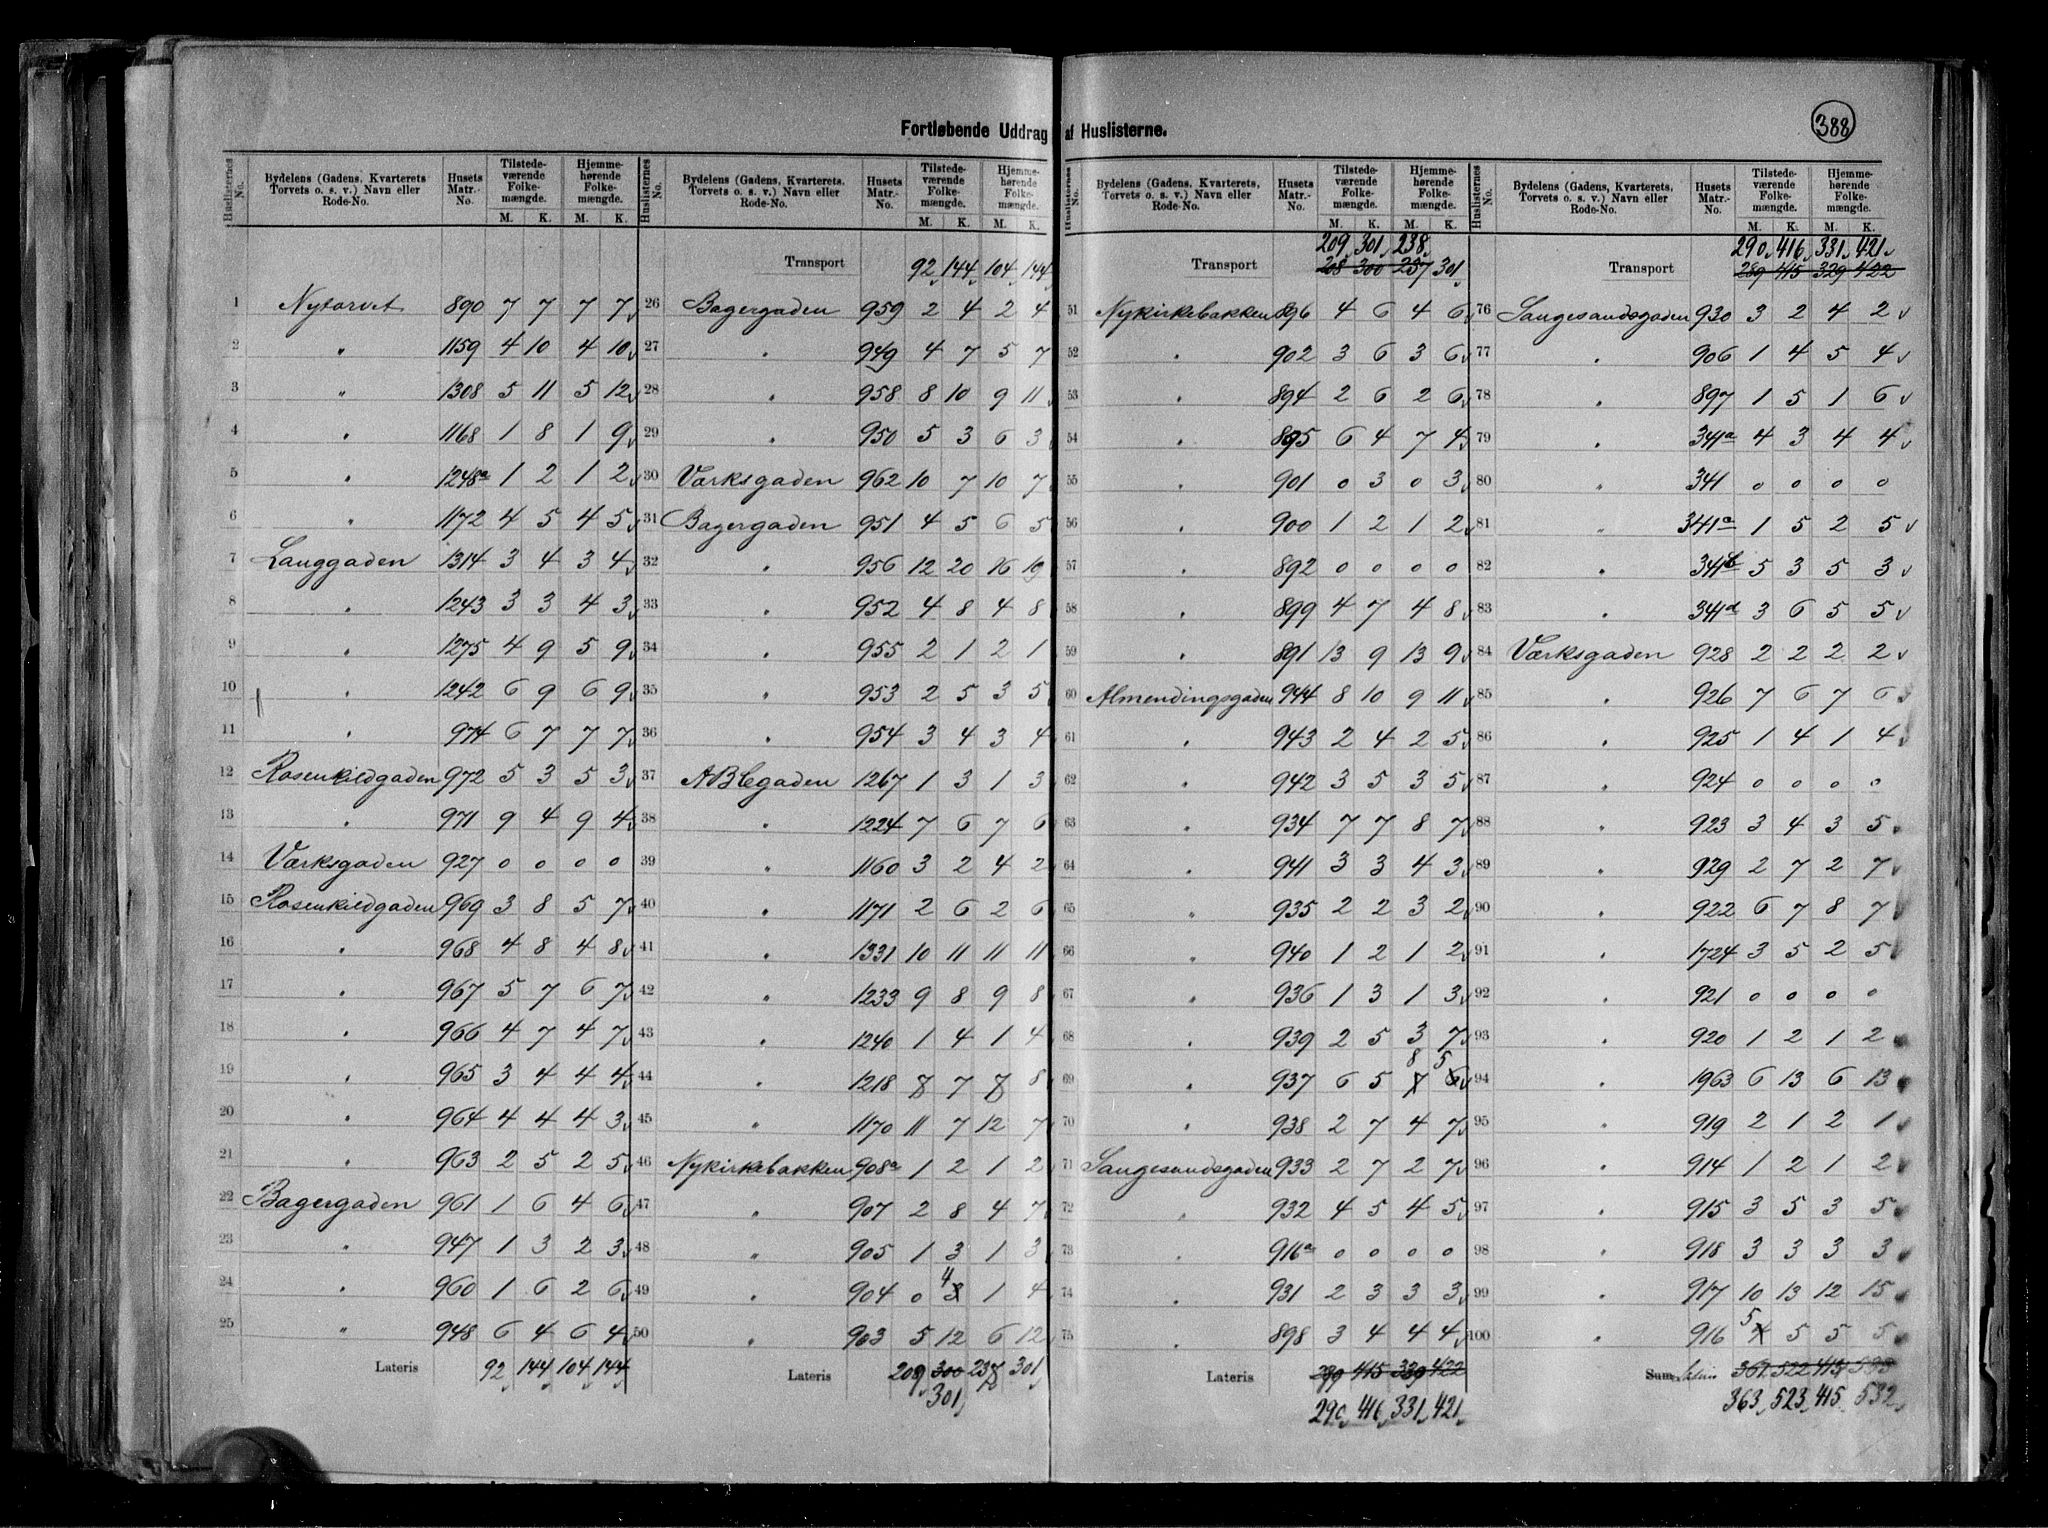 388
Fortløbende Uddrag af Huslisterne.
Huslisternes No. | Bydelens (Gadens, Kvarterets, Torvets o. s. v.) Navn eller Rode-No. | Husets Matr.-No. | Tilstede-værende Folke-mængde. M. K. | Hjemme-hørende Folke-mængde. M. K.
1 Nytorvet 890 7 7 7 7
2 " 1159 4 10 4 10
3 " 1308 5 11 5 12
4 " 1168 1 8 1 9
5 " 1248a 1 2 1 2
6 " 1172 4 5 4 5
7 Langgaden 1314 3 4 3 4
8 " 1243 3 3 4 3
9 " 1275 4 9 5 9
10 " 1242 6 9 6 9
11 " 974 6 7 7 7
12 Rosenkildgaden 972 5 3 5 3
13 " 971 9 4 9 4
14 Værksgaden 927 0 0 0 0
15 Rosenkildgaden 969 3 8 5 7
16 " 968 4 8 4 8
17 " 967 5 7 6 7
18 " 966 4 7 4 7
19 " 965 3 4 4 4
20 " 964 4 4 4 3
21 " 963 2 5 2 5
22 Bagergaden 961 1 6 4 6
23 " 947 1 3 2 3
24 " 960 1 6 2 6
25 " 948 6 4 6 4
Lateris 92 144 104 144
Huslisternes No. | Bydelens (Gadens, Kvarterets, Torvets o. s. v.) Navn eller Rode-No. | Husets Matr.-No. | Tilstede-værende Folke-mængde. M. K. | Hjemme-hørende Folke-mængde. M. K.
Transport 92 144 104 144
26 Bagergaden 959 2 4 2 4
27 " 949 4 7 5 7
28 " 958 8 10 9 11
29 " 950 5 3 6 3
30 Værksgaden 962 10 7 10 7
31 Bagergaden 951 4 5 6 5
32 " 956 12 20 16 19
33 " 952 4 8 4 8
34 " 955 2 1 2 1
35 " 953 2 5 3 5
36 " 954 3 4 3 4
37 ABCgaden 1267 1 3 1 3
38 " 1224 7 6 7 6
39 " 1160 3 2 4 2
40 " 1171 2 6 2 6
41 " 1331 10 11 11 11
42 " 1233 9 8 9 8
43 " 1240 1 4 1 4
44 " 1218 8 7 8 8
45 " 1170 11 7 12 7
46 Nykirkebakken 908a 1 2 1 2
47 " 907 2 8 4 7
48 " 905 1 3 1 3
49 " 904 0 4 3 1 4
50 " 903 5 12 6 12
Lateris 209 300 238 301
301
Huslisternes No. | Bydelens (Gadens, Kvarterets, Torvets o. s. v.) Navn eller Rode-No. | Husets Matr.-No. | Tilstede-værende Folke-mængde. M. K. | Hjemme-hørende Folke-mængde. M. K.
209 301 238
Transport 208 300 237 301
51 Nykirkebakken 896 4 6 4 6
52 " 902 3 6 3 6
53 " 894 2 6 2 6
54 " 895 6 4 7 4
55 " 901 0 3 0 3
56 " 900 1 2 1 2
57 " 892 0 0 0 0
58 " 899 4 7 4 8
59 " 891 13 9 13 9
60 Almendingsgaden 944 8 10 9 11
61 " 943 2 4 2 5
62 " 942 3 5 3 5
63 " 934 7 7 8 7
64 " 941 3 3 4 3
65 " 935 2 2 3 2
66 " 940 1 2 1 2
67 " 936 1 3 1 3
68 " 939 2 5 3 7
8 5
69 " 937 6 5 7 6
70 " 938 2 7 4 7
71 Langesandsgaden 933 2 7 2 7
72 " 932 4 5 4 5
73 " 916a 0 0 0 0
74 " 931 2 3 3 3
75 " 898 3 4 4 4
Lateris 289 415 329 422
290 416 331 421
Huslisternes No. | Bydelens (Gadens, Kvarterets, Torvets o. s. v.) Navn eller Rode-No. | Husets Matr.-No. | Tilstede-værende Folke-mængde. M. K. | Hjemme-hørende Folke-mængde. M. K.
290 416 331 421
Transport 289 415 329 422
76 Langesandsgaden 930 3 2 4 2
77 " 906 1 4 5 4
78 " 897 1 5 1 6
79 " 341a 4 3 4 4
80 " 341 0 0 0 0
81 " 341a 1 5 2 5
82 " 341b 5 3 5 3
83 " 341d 3 6 5 5
84 Værksgaden 928 2 2 2 2
85 " 926 7 6 7 6
86 " 925 1 4 1 4
87 " 924 0 0 0 0
88 " 923 3 4 3 5
89 " 929 2 7 2 7
90 " 922 6 7 8 7
91 " 1724 3 5 2 5
92 " 921 0 0 0 0
93 " 920 1 2 1 2
94 " 1963 6 13 6 13
95 " 919 2 1 2 1
96 " 914 1 2 1 2
97 " 915 3 5 3 5
98 " 918 3 3 3 3
99 " 917 10 13 12 15
5
100 " 916 4 5 5 5
Sum 361 522 413 533
363 523 415 532